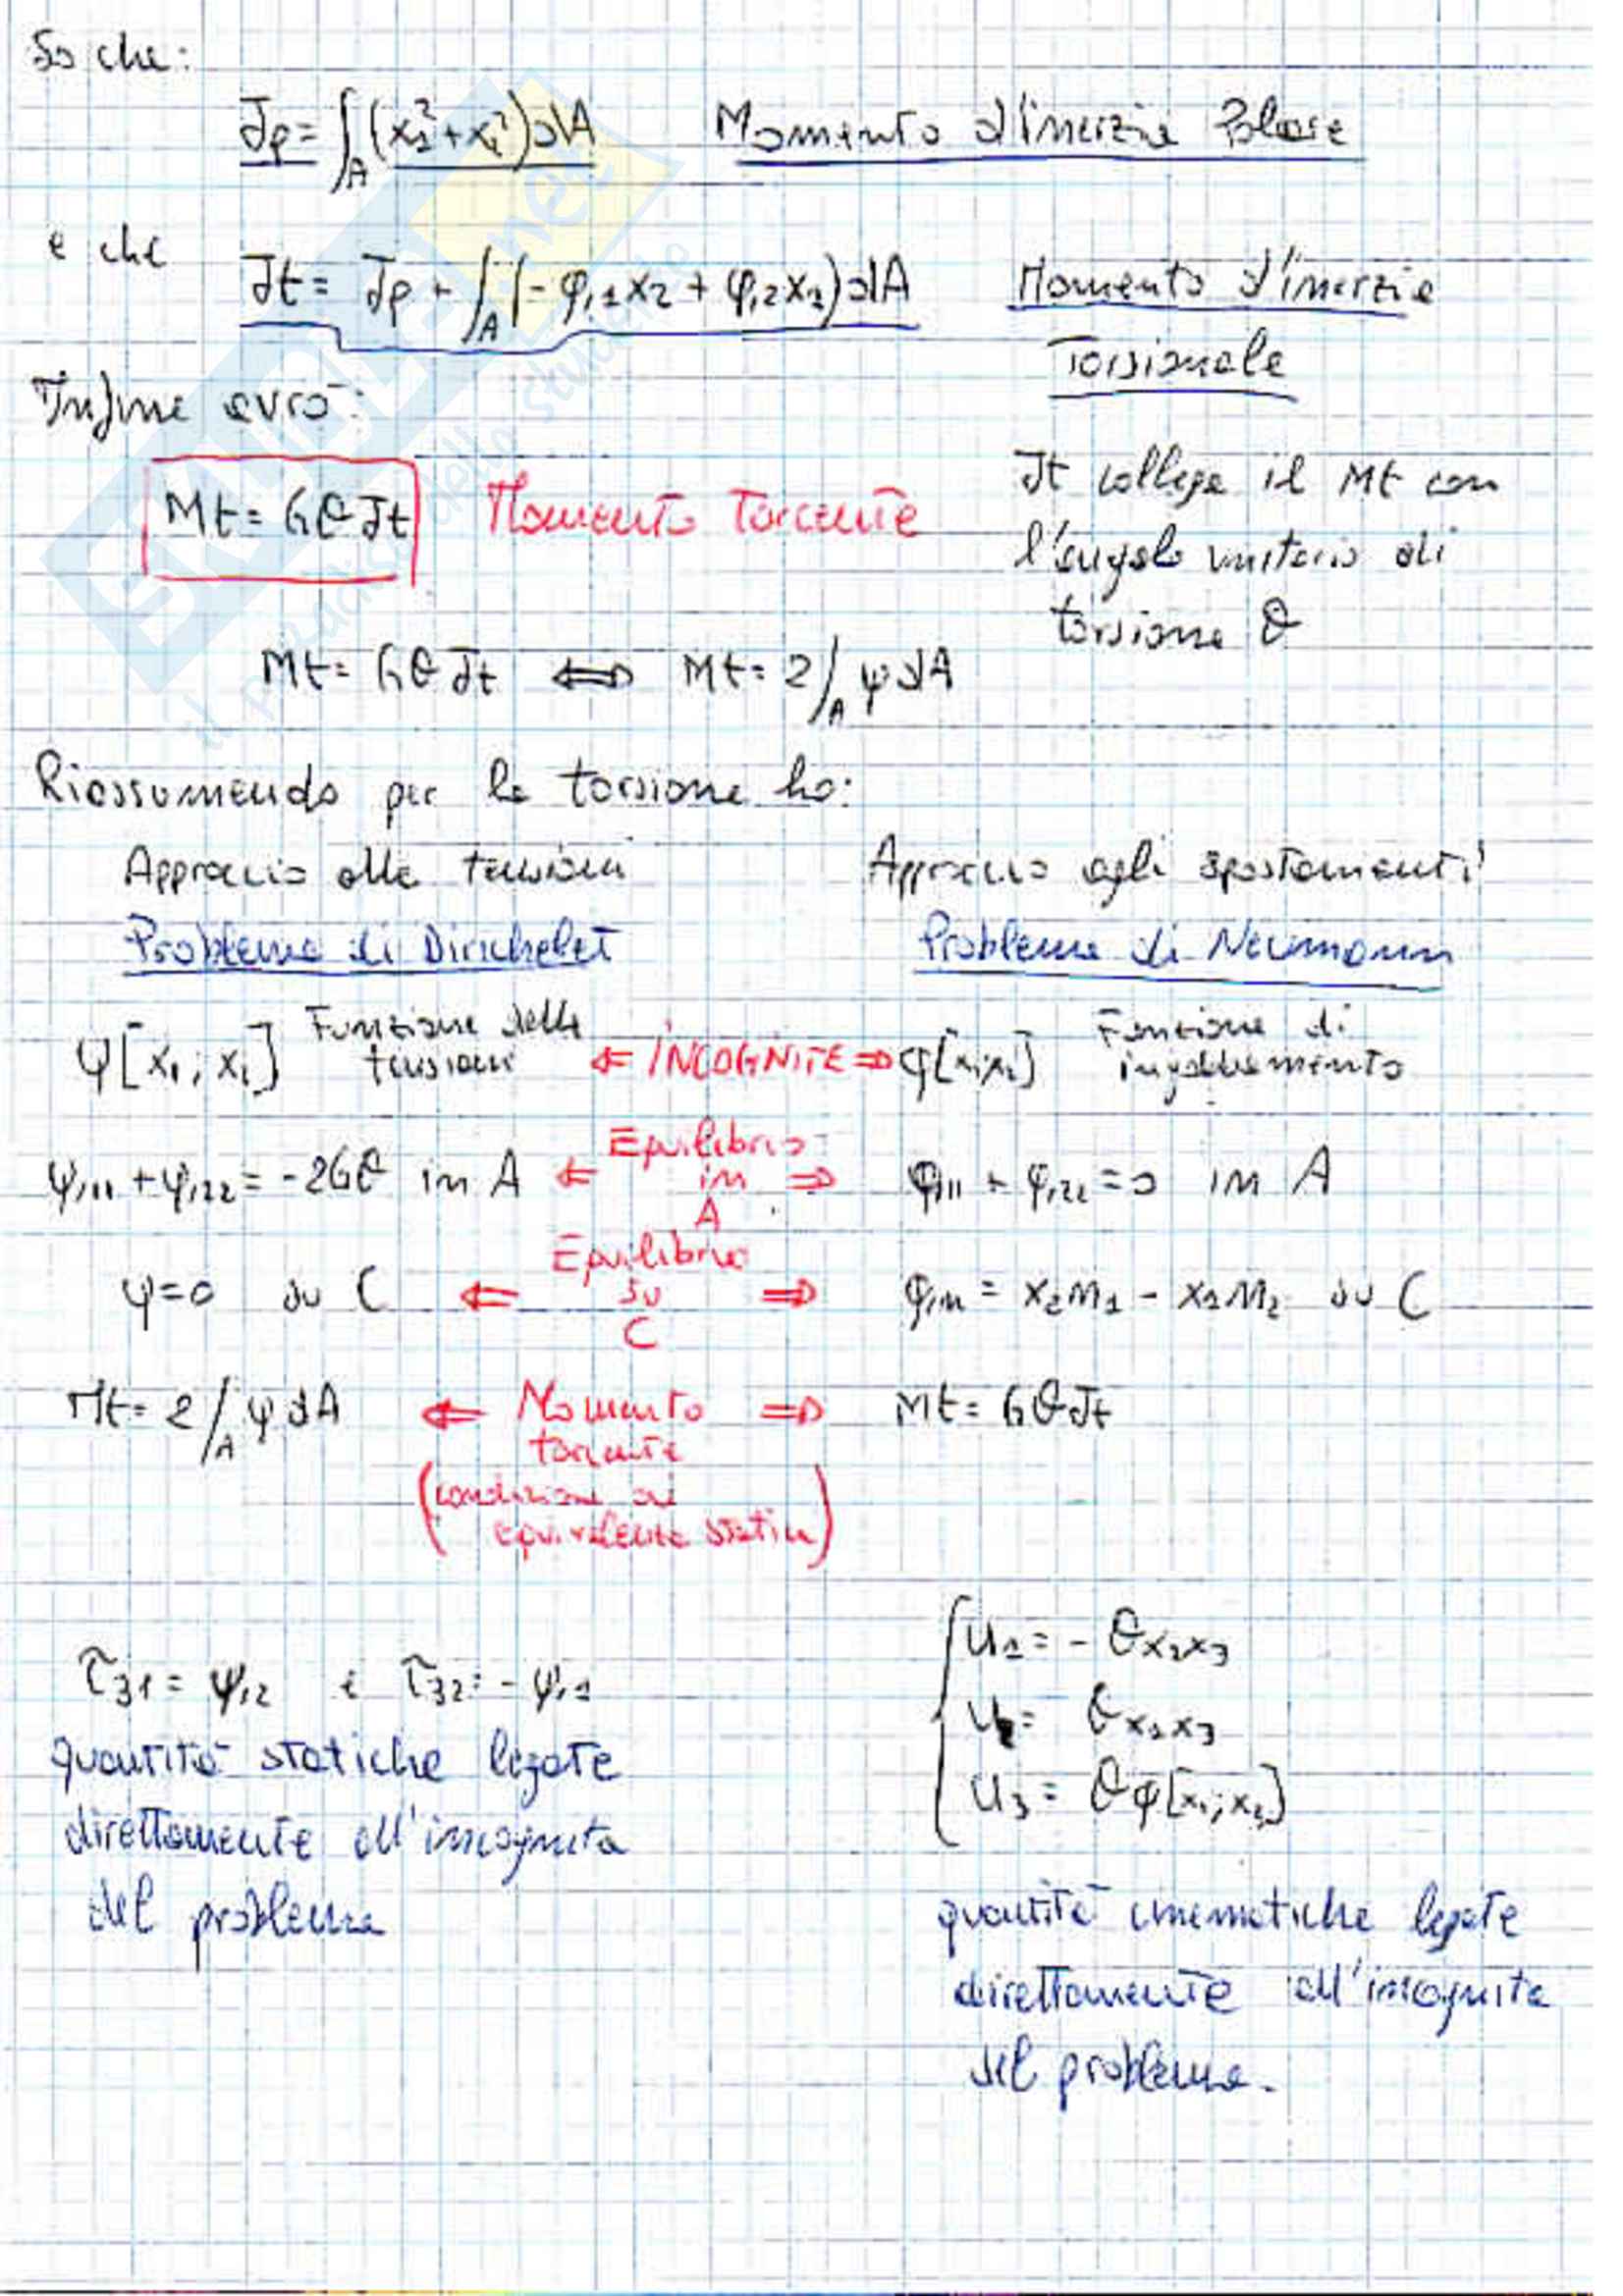 So che:
Jp = ∫_A (x₂² + x₁²) dA Momento d'inerzia Polare
e che Jt = Jp + ∫_A (- φ,₁ x₂ + φ,₂ x₁) dA Momento d'inerzia
Torsionale
Infine avrò:
Mt = GθJt Momento Torcente
Jt collega il Mt con
l'angolo unitario di
torsione θ
Mt = GθJt ⟺ Mt = 2∫_A ψ dA
Riassumendo per la torsione ho:
Approccio alle tensioni Approccio agli spostamenti
Problema di Dirichelet Problema di Neumann
ψ[x₁; x₂] Funzione delle tensioni ⇐ INCOGNITE ⇒ φ[x₁; x₂] Funzione di ingobbamento
ψ,₁₁ + ψ,₂₂ = -2Gθ in A ⇐ Equilibrio in A ⇒ φ,₁₁ + φ,₂₂ = 0 in A
ψ = 0 su C ⇐ Equilibrio su C ⇒ φ,n = x₂n₁ - x₁n₂ su C
Mt = 2∫_A ψ dA ⇐ Momento torcente ⇒ Mt = GθJt
(condizione di
equivalenza statica)
τ₃₁ = ψ,₂ e τ₃₂ = - ψ,₁
quantità statiche legate
direttamente all'incognita
del problema
u₁ = - θx₂x₃
u₂ = θx₁x₃
u₃ = θφ[x₁; x₂]
quantità cinematiche legate
direttamente all'incognita
del problema.
SKUOLA.net
il paradiso dello studente